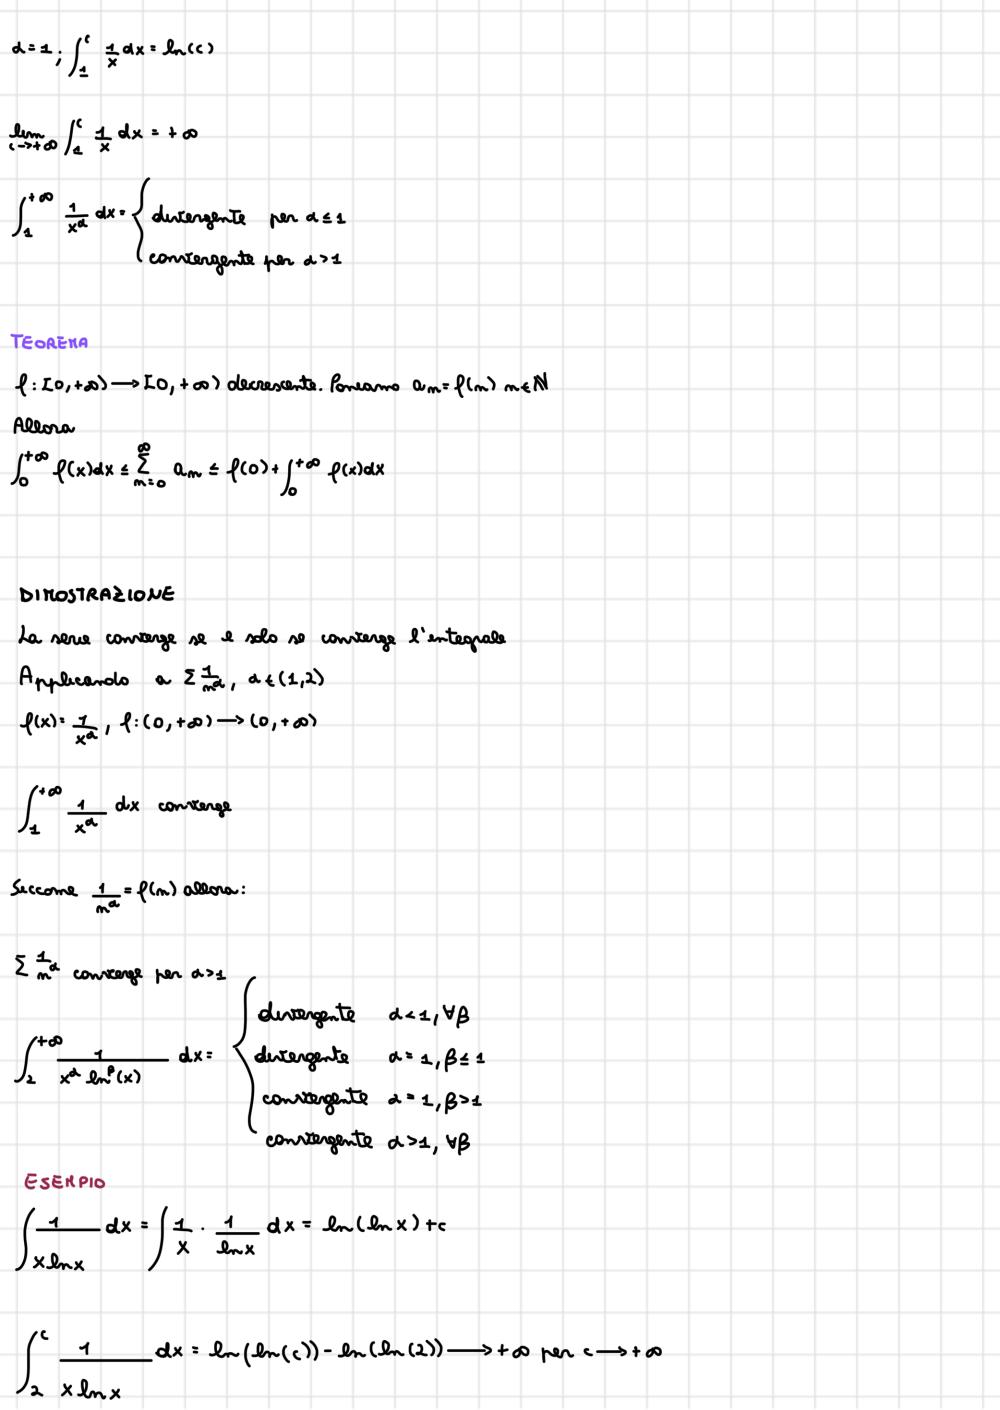 α=1; ∫₁ᶜ 1/x dx = ln(c)
lim c→+∞ ∫₁ᶜ 1/x dx = +∞
∫₁^{+∞} 1/x^α dx = { divergente per α≤1
convergente per α>1
TEOREMA
f: [0,+∞) → [0,+∞) decrescente. Poniamo aₙ = f(n) n∈ℕ
Allora
∫₀^{+∞} f(x)dx ≤ Σ_{n=0}^{∞} aₙ ≤ f(0) + ∫₀^{+∞} f(x)dx
DIMOSTRAZIONE
La serie converge se e solo se converge l'integrale
Applicando a Σ 1/n^α, α∈(1,2)
f(x) = 1/x^α, f: (0,+∞) → (0,+∞)
∫₁^{+∞} 1/x^α dx converge
Siccome 1/n^α = f(n) allora:
Σ 1/n^α converge per α>1
∫₂^{+∞} 1/(x^α ln^β(x)) dx = { divergente α<1, ∀β
divergente α=1, β≤1
convergente α=1, β>1
convergente α>1, ∀β
ESEMPIO
∫ 1/(x ln x) dx = ∫ 1/x · 1/(ln x) dx = ln(ln x)+c
∫₂ᶜ 1/(x ln x) dx = ln(ln(c)) - ln(ln(2)) → +∞ per c → +∞